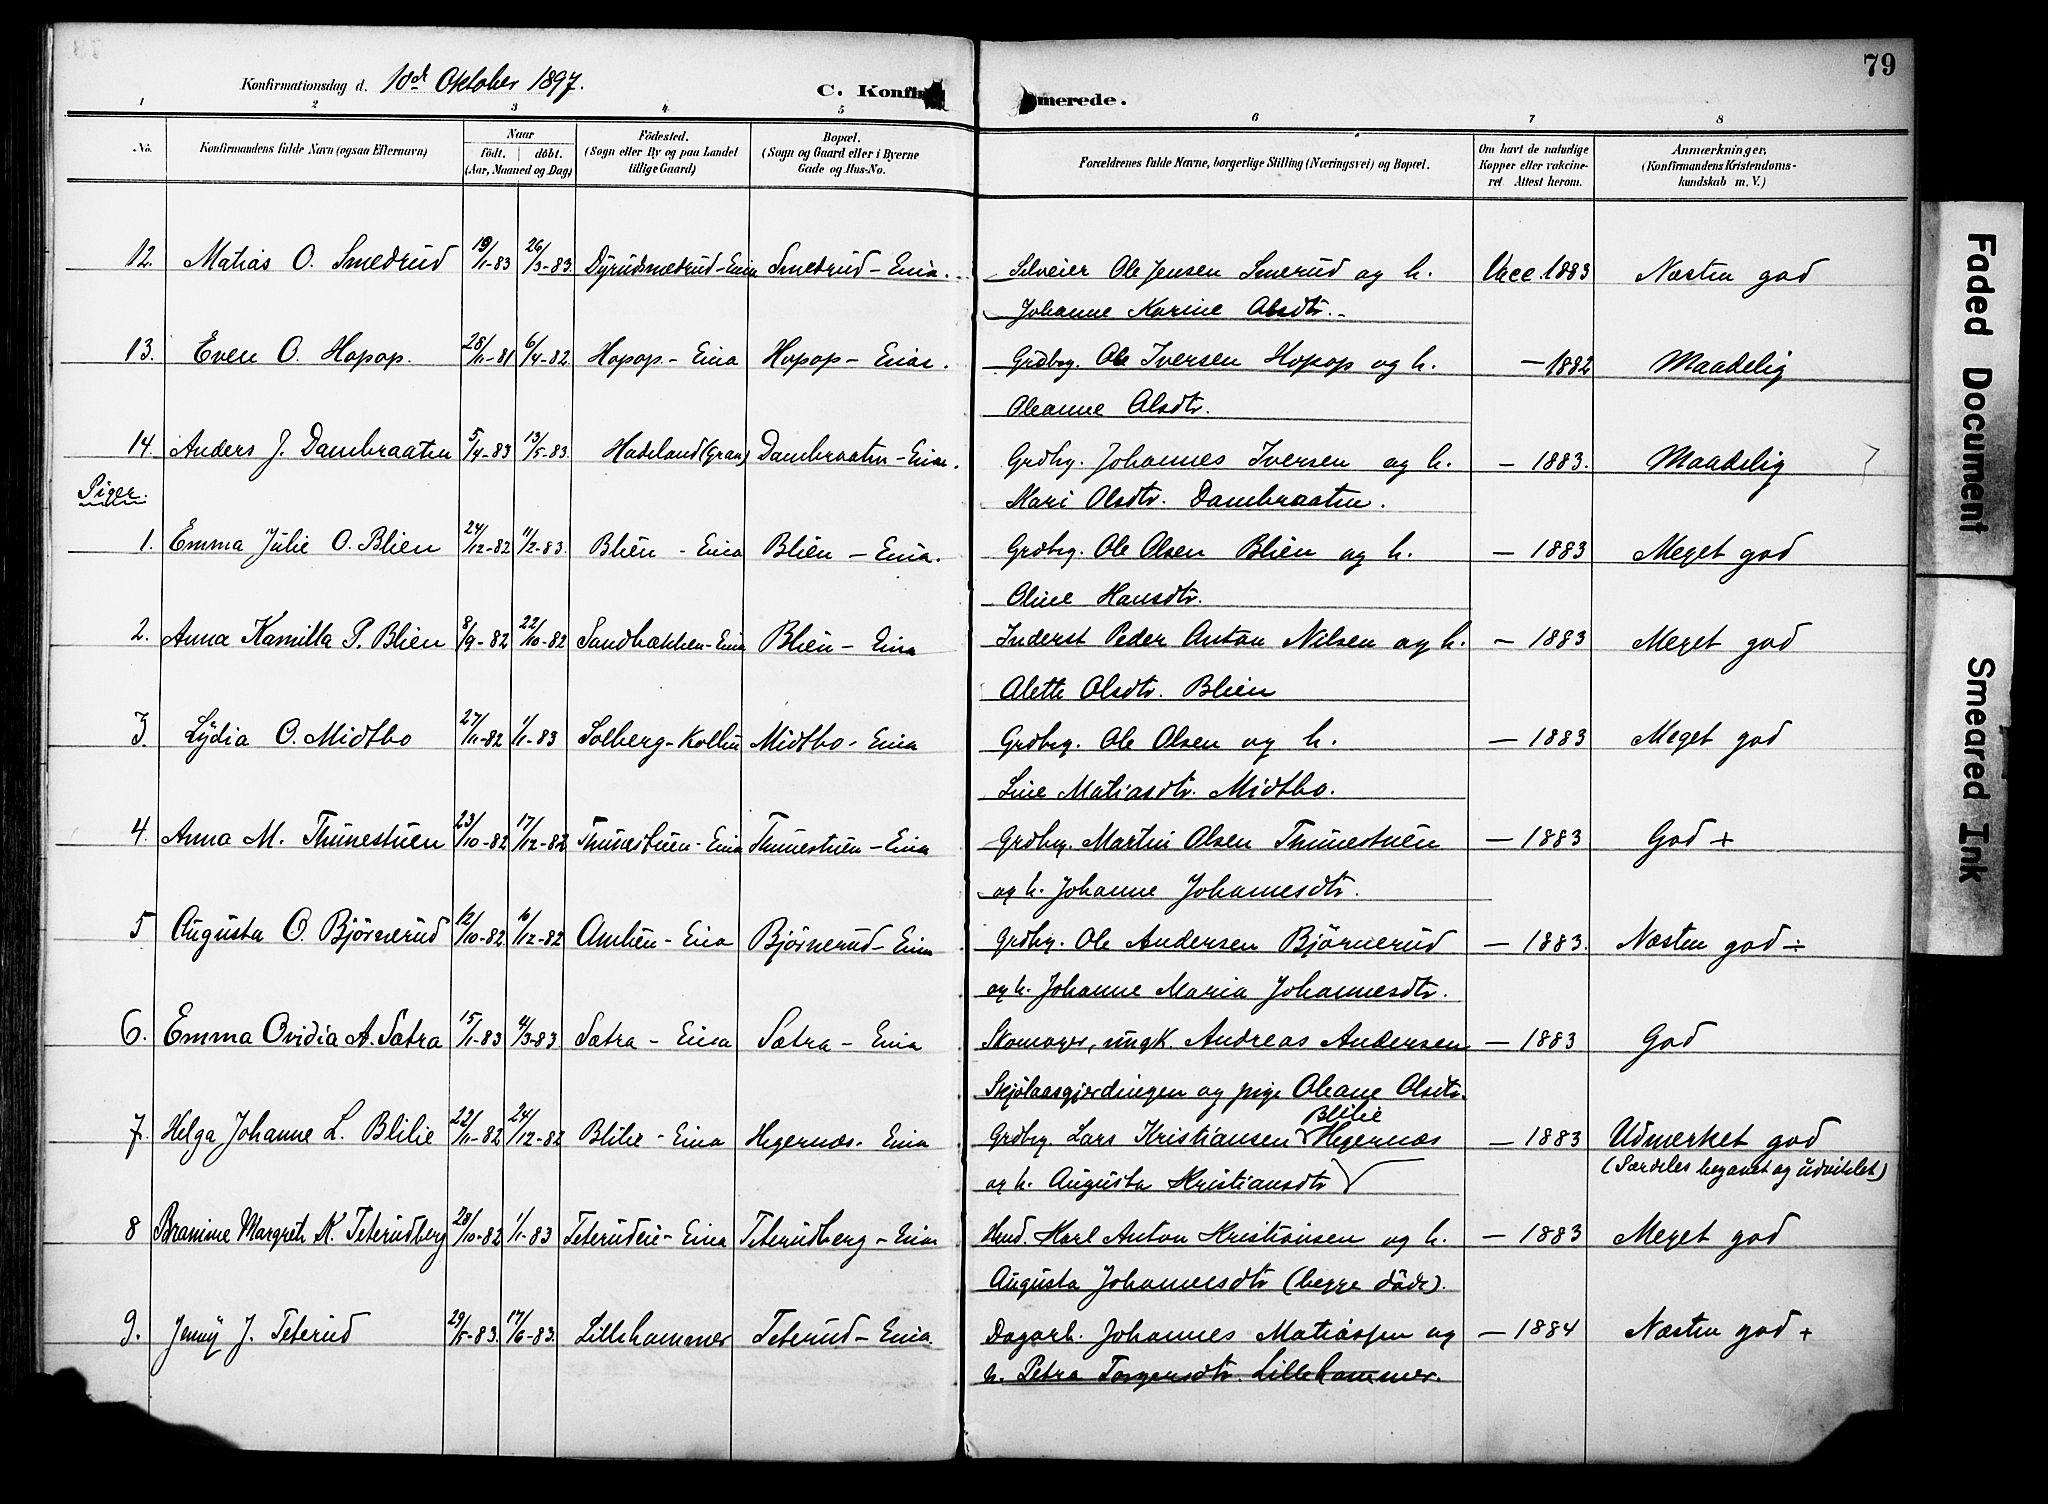 79
Konfirmationsdag d. 10de Oktober 1897.
C. Konfir merede.
1 2 3 4 5 6 7 8
No. Konfirmandens fulde Navn (ogsaa Efternavn) Naar födt. döbt. (Aar, Maaned og Dag) Födested. (Sogn eller By og paa Landet tillige Gaard) Bopæl. (Sogn og Gaard eller i Byerne Gade og Hus-No. Forældrenes fulde Navne, borgerlige Stilling (Næringsvei) og Bopæl. Om havt de naturlige Kopper eller vakcineret Attest herom. Anmærkninger. (Konfirmandens Kristendomskundskab m. V.)
12. Matias O. Smedrud 19/1-83 26/3-83. Dyrudsmedrud-Eina Smedrud-Eina. Selveier Ole Jensen Smerud og h. Vacc. 1883 Næsten god
Johanne Karine Olsdtr.
13. Even O. Hopop. 28/11-81 6/4-82 Hopop.-Eina Hopop-Eina. Grdbrg. Ole Iversen Hopop og h. -1882 Maadelig
Oleanne Olsdtr.
14. Anders J. Dambraaten 5/4-83 13/5-83. Hadeland (Gran) Dambraaten-Eina. Grdbrg. Johannes Iversen og h. -1883. Maadelig
Piger.
Kari Olsdtr. Dambraaten.
1. Emma Julie O. Blien 24/12-82 11/2-83. Blien-Eina Blien-Eina. Grdbrg. Ole Olsen Blien og h. -1883 Meget god
Oline Hansdtr.
2. Anna Kamilla P. Blien 8/9-82 22/10-82 Sandbækken-Eina Blien-Eina Inderst Peder Anton Nilsen og h. -1883 Meget god
Alette Olsdtr. Blien
3. Lydia O. Midtbo 27/11-82 1/1-83 Solberg-Kolbu Midtbo-Eina Grdbrg. Ole Olsen og h. -1883 Meget god
Line Matiasdtr. Midtbo.
4. Anna M. Thunestuen 23/10-82 17/12-82 Thunestuen-Eina Thunestuen-Eina Grdbrg. Martin Olsen Thunestuen -1883 God +
og h. Johanne Johannesdtr.
5 Augusta O. Bjørnerud 12/10-82 16/12-82 Amlien-Eina Bjørnerud-Eina Grdbrg. Ole Andersen Bjørnerud -1883. Næsten god ÷
og h. Johanne Maria Johannesdtr.
6. Emma Ovidia A. Sætra 15/1-83 4/3-83 Sætra-Eina Sætra-Eina Skomager, ungk. Andreas Andersen -1883 God
Skjølaasgjerdingen og pige Oleane Olsdtr.
Blilie
7. Helga Johanne L. Blilie 22/11-82 24/12-82 Blilie-Eina Hegernæs-Eina Grdbrg. Lars Kristiansen Hegernæs -1883 Udmerket god
(Særdeles begavet og udviklet)
og h. Augusta Kristiansdtr
8 Bramine Margrete K. Teterudberg 28/10-82 1/1-83 Teterudeie-Eina Teterudberg-Eina Hmd. Karl Anton Kristiansen og h. -1883 Meget god
Augusta Johannesdtr (begge døde).
9. Jenny J. Teterud 29/5-83. 17/6-83. Lillehammer Teterud-Eina. Dagarb. Johannes Matiassen og -1884 Næsten god +
h. Petra Torgersdtr. Lillehammer.
Faded Document
Smeared Ink